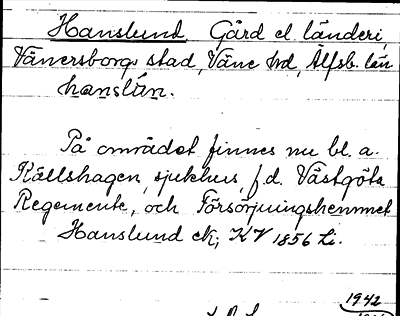 Hanslund Gård el. länderi,
Vänersborgs stad, Väne hd, Älfsb. län
hanslún.
På området finnes nu bl. a.
Källshagen, sjukhus, f.d. Västgöta
Regemente, och Försörjningshemmet
Hanslund ek; KV 1856 Li.
1942